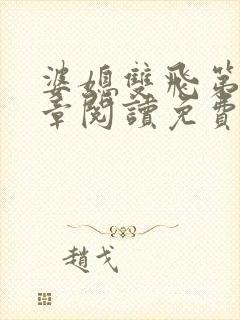 婆媳雙飛第
章閱讀免費
趙戈